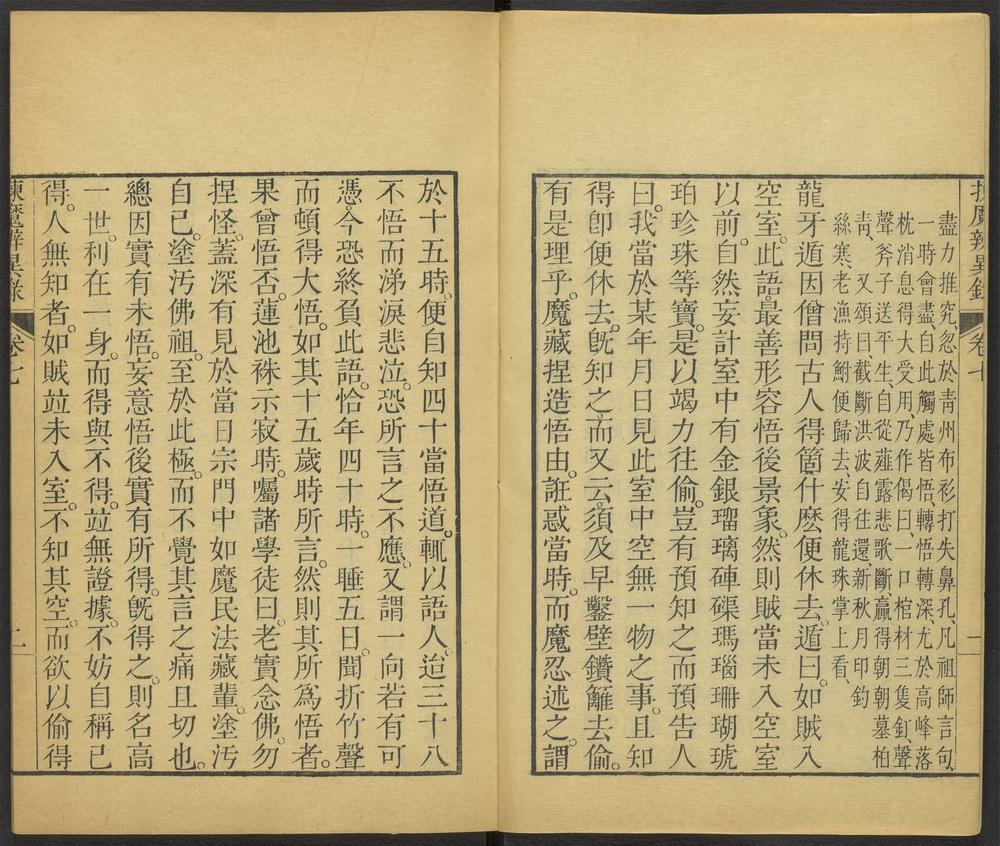 揀魔辨異錄 卷七 二
盡力推究忽於青州布衫打失鼻孔凡祖師言句、
一時會盡、自此觸處皆悟、轉悟轉深、尤於高峰落
枕消息得大受用、乃作偈曰、一口棺材三隻釘、聲
聲斧子送平生、自從薤露悲歌斷、贏得朝朝墓柏
靑、又頌曰、截斷洪波自往還、新秋月印釣
絲寒、老漁持鮒便歸去、安得龍珠掌上看、
龍牙遁因僧問古人得箇什麽便休去。遁曰。如賊入
空室。此語。最善形容悟後景象。然則賊當未入空室
以前。自然妄計室中有金銀瑠璃硨磲瑪瑙珊瑚琥
珀珍珠等寶。是以竭力往偷。豈有預知之而預告人
曰。我當於某年月日見此室中空無一物之事。且知
得卽便休去。旣知之。而又云。須及早鑿壁鑽籬去偷。
有是理乎。魔藏捏造悟由。誑惑當時。而魔忍述之。謂
於十五時。便自知四十當悟道。輒以語人。迨三十八
不悟而涕淚悲泣。恐所言之不應。又謂一向若有可
憑。今恐終負此語。恰年四十時。一睡五日。聞折竹聲
而頓得大悟。如其十五歲時所言。然則其所爲悟者。
果曾悟否。蓮池祩示寂時。囑諸學徒曰。老實念佛。勿
捏怪。蓋深有見於當日宗門中如魔民法藏輩。塗汚
自己。塗汚佛祖。至於此極。而不覺其言之痛且切也。
總因實有未悟。妄意悟後實有所得。旣得之。則名高
一世。利在一身。而得與不得。竝無證據。不妨自稱已
得。人無知者。如賊竝未入室。不知其空。而欲以偷得
揀魔辨異錄 卷七 二